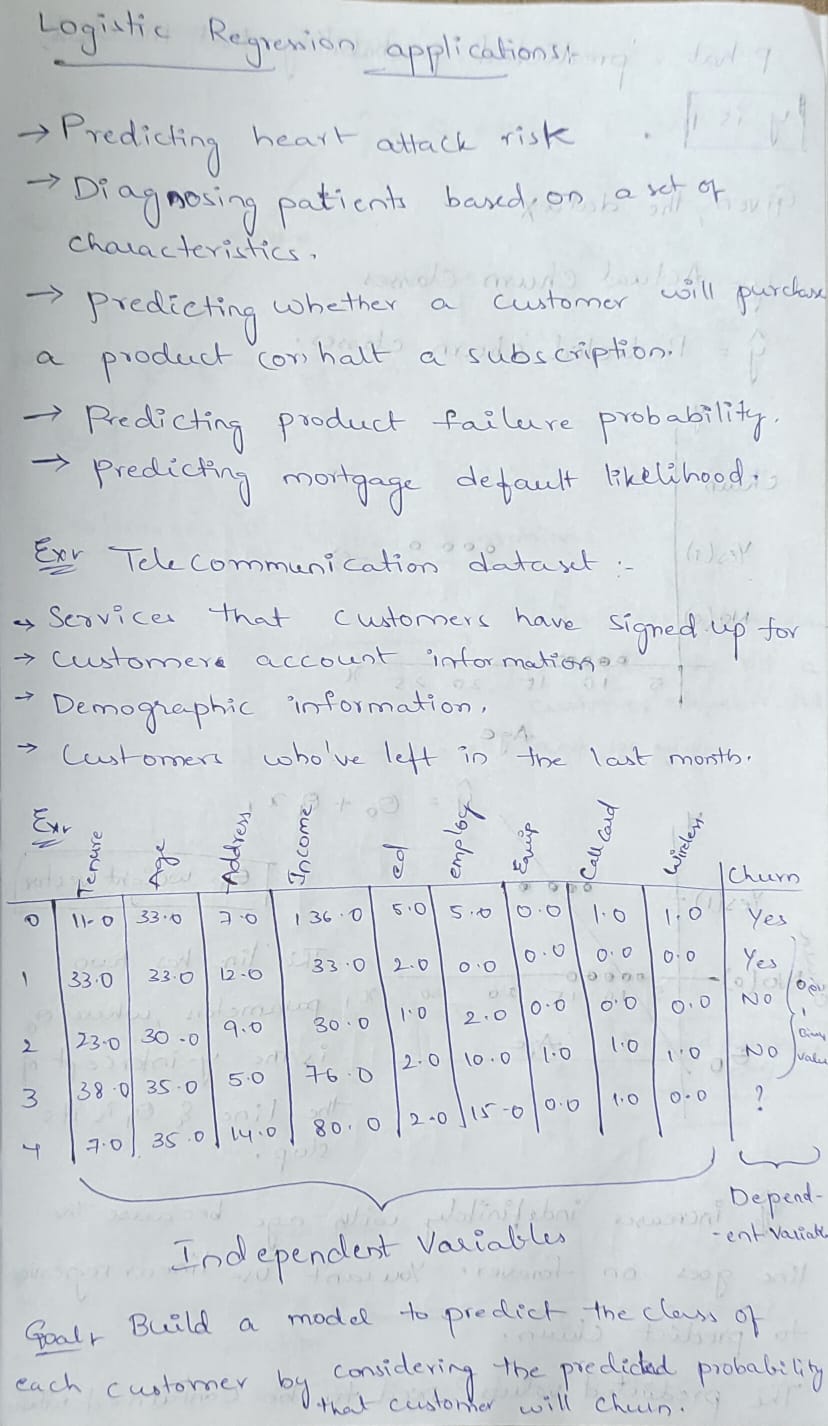 Logistic Regression applications:-
→ Predicting heart attack risk
→ Diagnosing patients based on a set of
characteristics.
→ predicting whether a customer will purchase
a product (or) halt a subscription.
→ Predicting product failure probability.
→ predicting mortgage default likelihood.
Ex:- Telecommunication dataset :-
→ Services that customers have signed up for
→ customers account information
→ Demographic information.
→ Customers who've left in the last month.
Ex:-
Tenure Age Address Income ed employ Equip Call Card Wireless Churn
0 11.0 33.0 7.0 136.0 5.0 5.0 0.0 1.0 1.0 Yes
1 33.0 33.0 12.0 33.0 2.0 0.0 0.0 0.0 0.0 Yes
2 23.0 30.0 9.0 30.0 1.0 2.0 0.0 0.0 0.0 NO
3 38.0 35.0 5.0 76.0 2.0 10.0 1.0 1.0 1.0 NO
4 7.0 35.0 14.0 80.0 2.0 15.0 0.0 1.0 0.0 ?
Independent Variables
Depend-
-ent Variable
Goal:- Build a model to predict the class of
each customer by considering the predicted probability
that customer will churn.